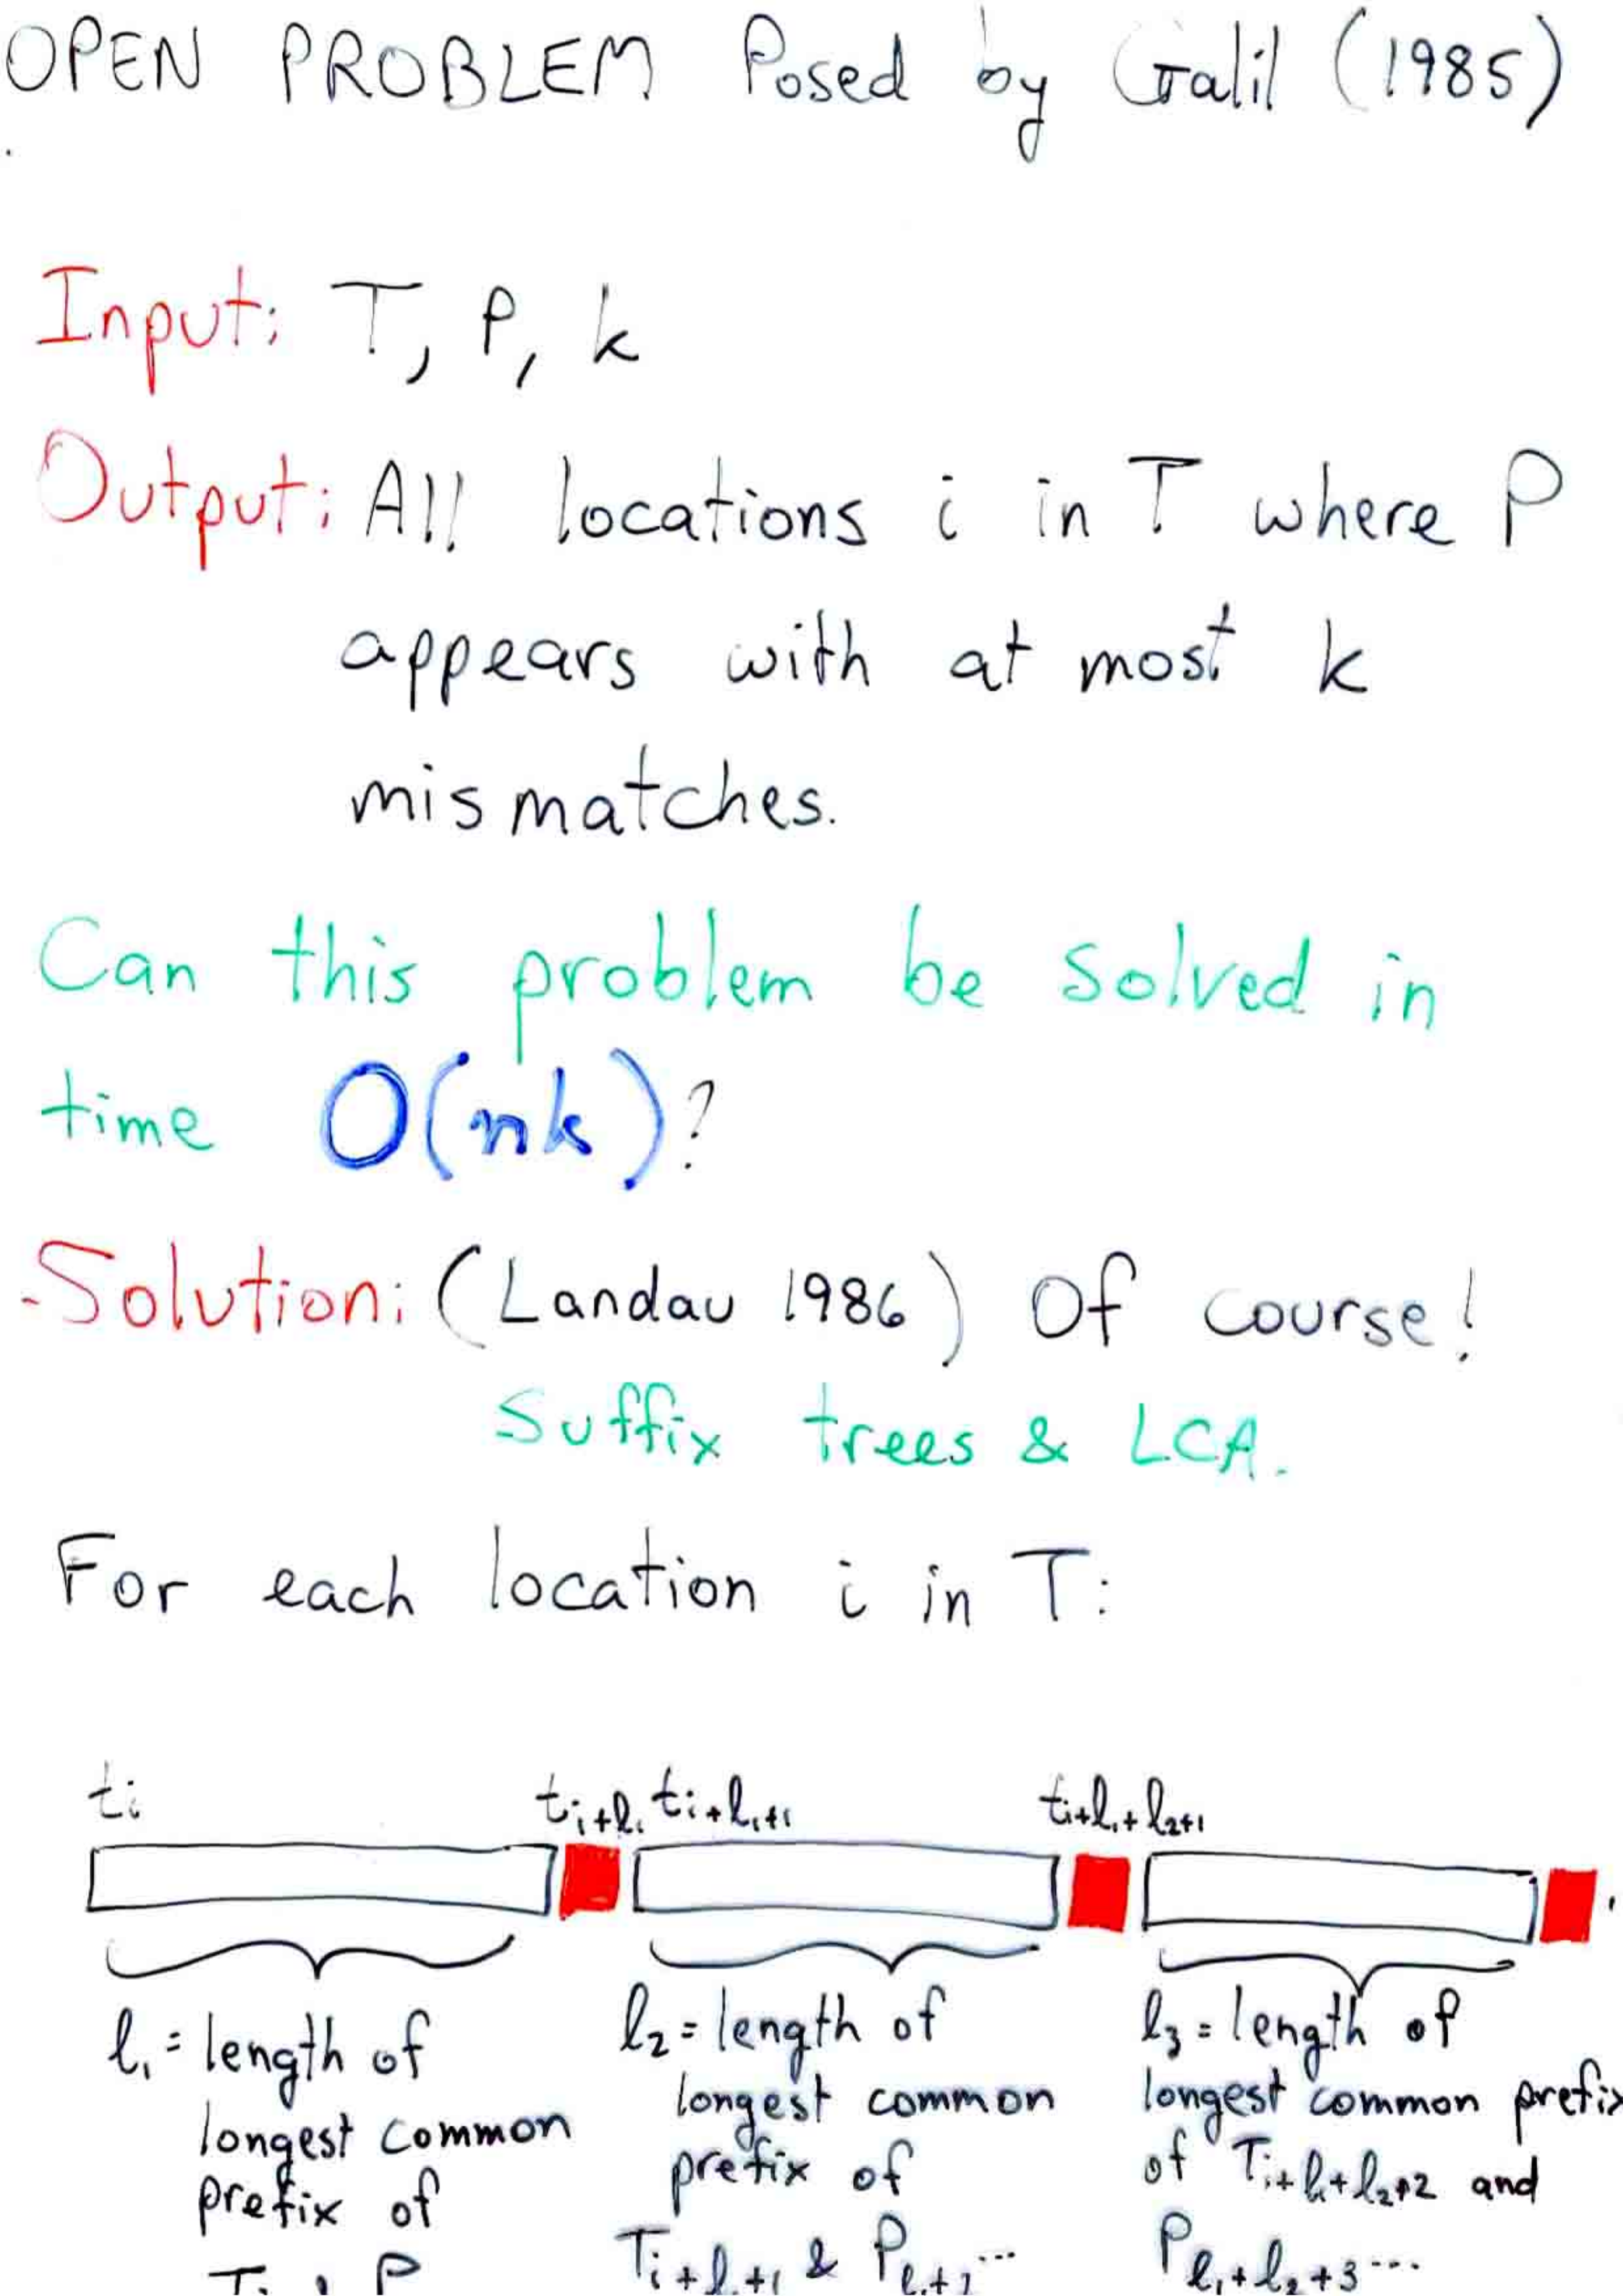 OPEN PROBLEM Posed by Galil (1985)
Input: T, P, k
Output: All locations i in T where P
appears with at most k
mismatches.
Can this problem be solved in
time O(nk)?
Solution: (Landau 1986) Of course!
Suffix trees & LCA.
For each location i in T:
t_i t_{i+l_1} t_{i+l_1+1} t_{i+l_1+l_2+1}
l_1 = length of longest common prefix of
l_2 = length of longest common prefix of T_{i+l_1+1} & P_{l_1+2}...
l_3 = length of longest common prefix of T_{i+l_1+l_2+2} and P_{l_1+l_2+3}...